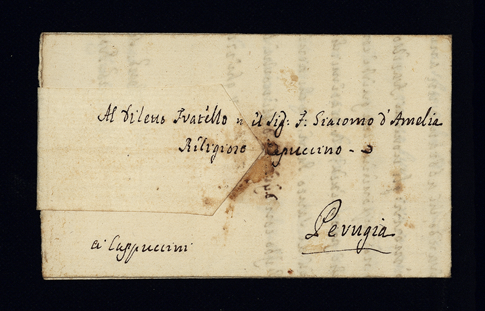 Al Diletto Fratello n il Sig: F. Giacomo d'Amelia
Religioso Capuccino
ai Cappuccini
Perugia